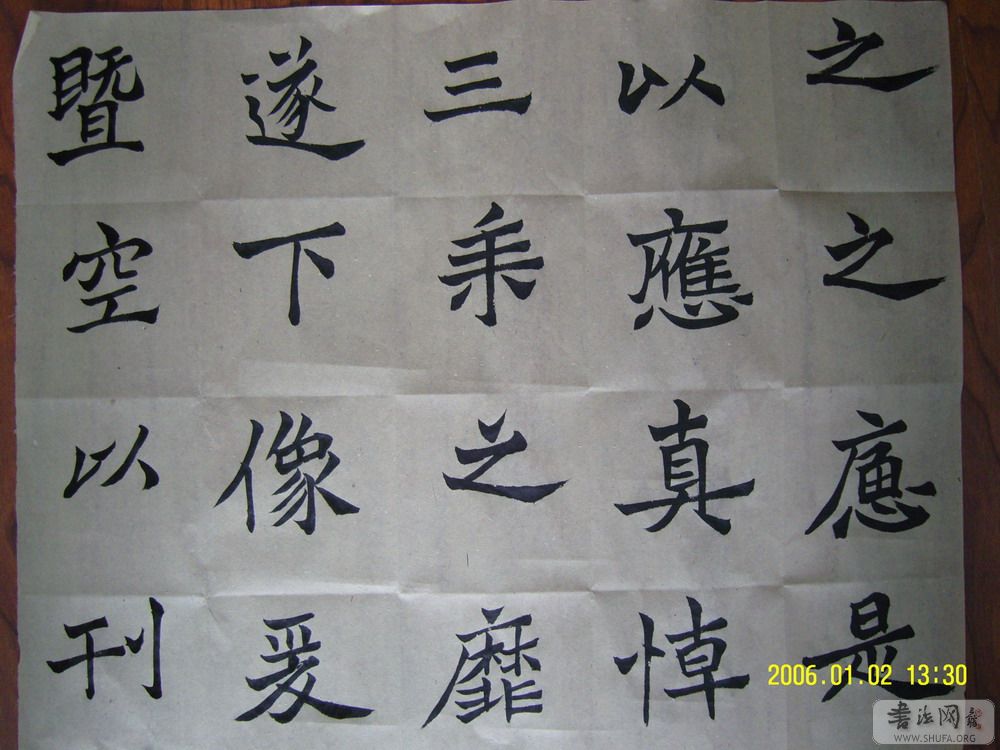 之之是
以應真悼
三乘之靡
遂下像爰
暨空以刊
2006.01.02 13:30
書法网
WWW.SHUFA.ORG